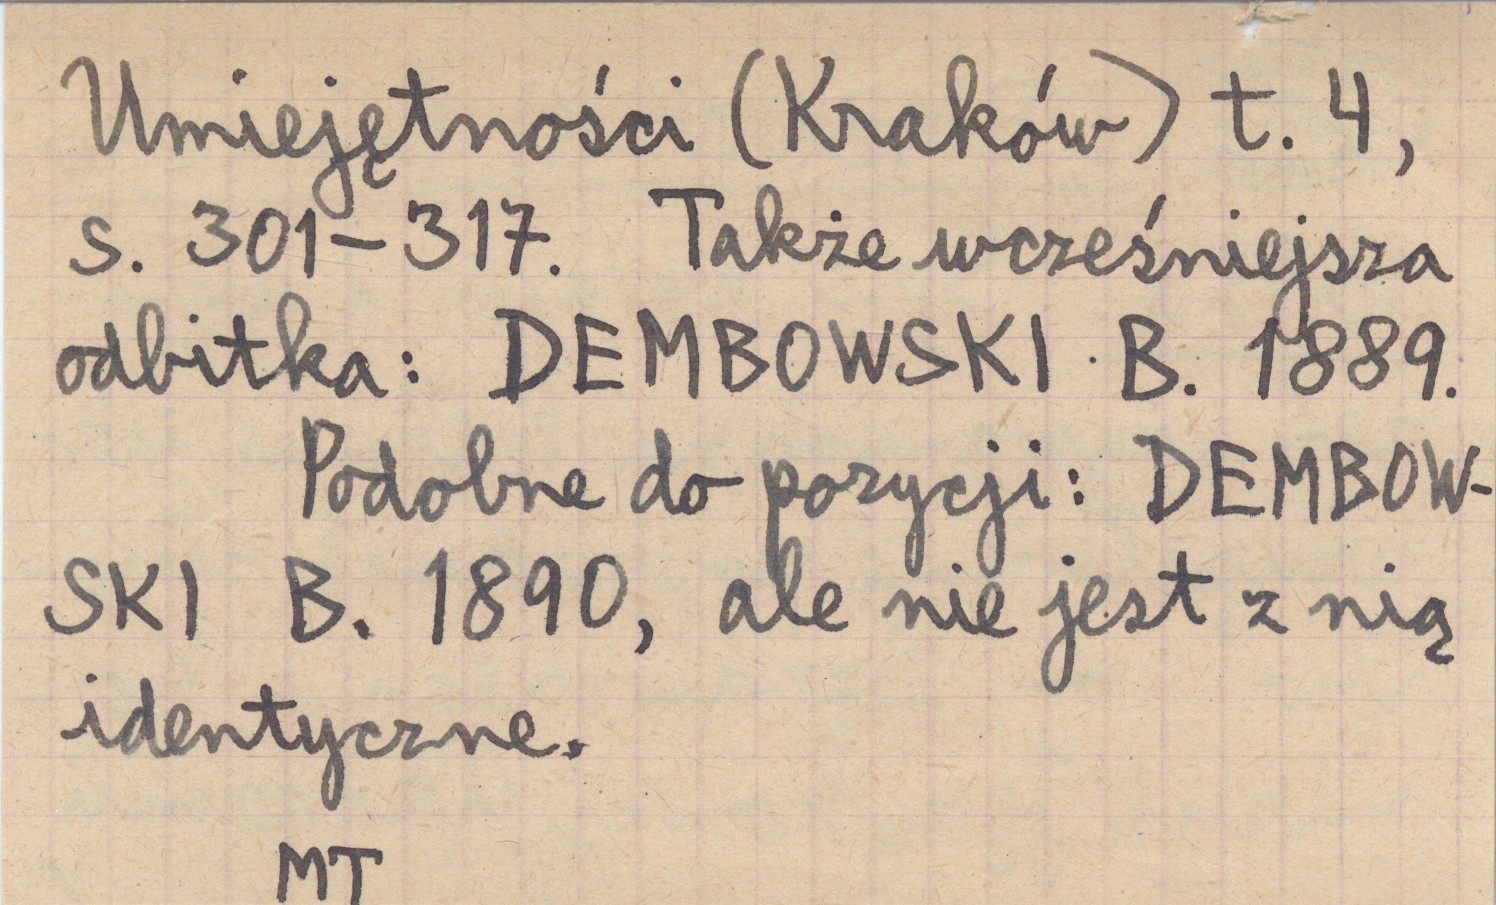 Umiejętności (Kraków) t. 4,
s. 301–317. Także wcześniejsza
odbitka: DEMBOWSKI B. 1889.
Podobne do pozycji: DEMBOW-
SKI B. 1890, ale nie jest z nią
identyczne.
MT